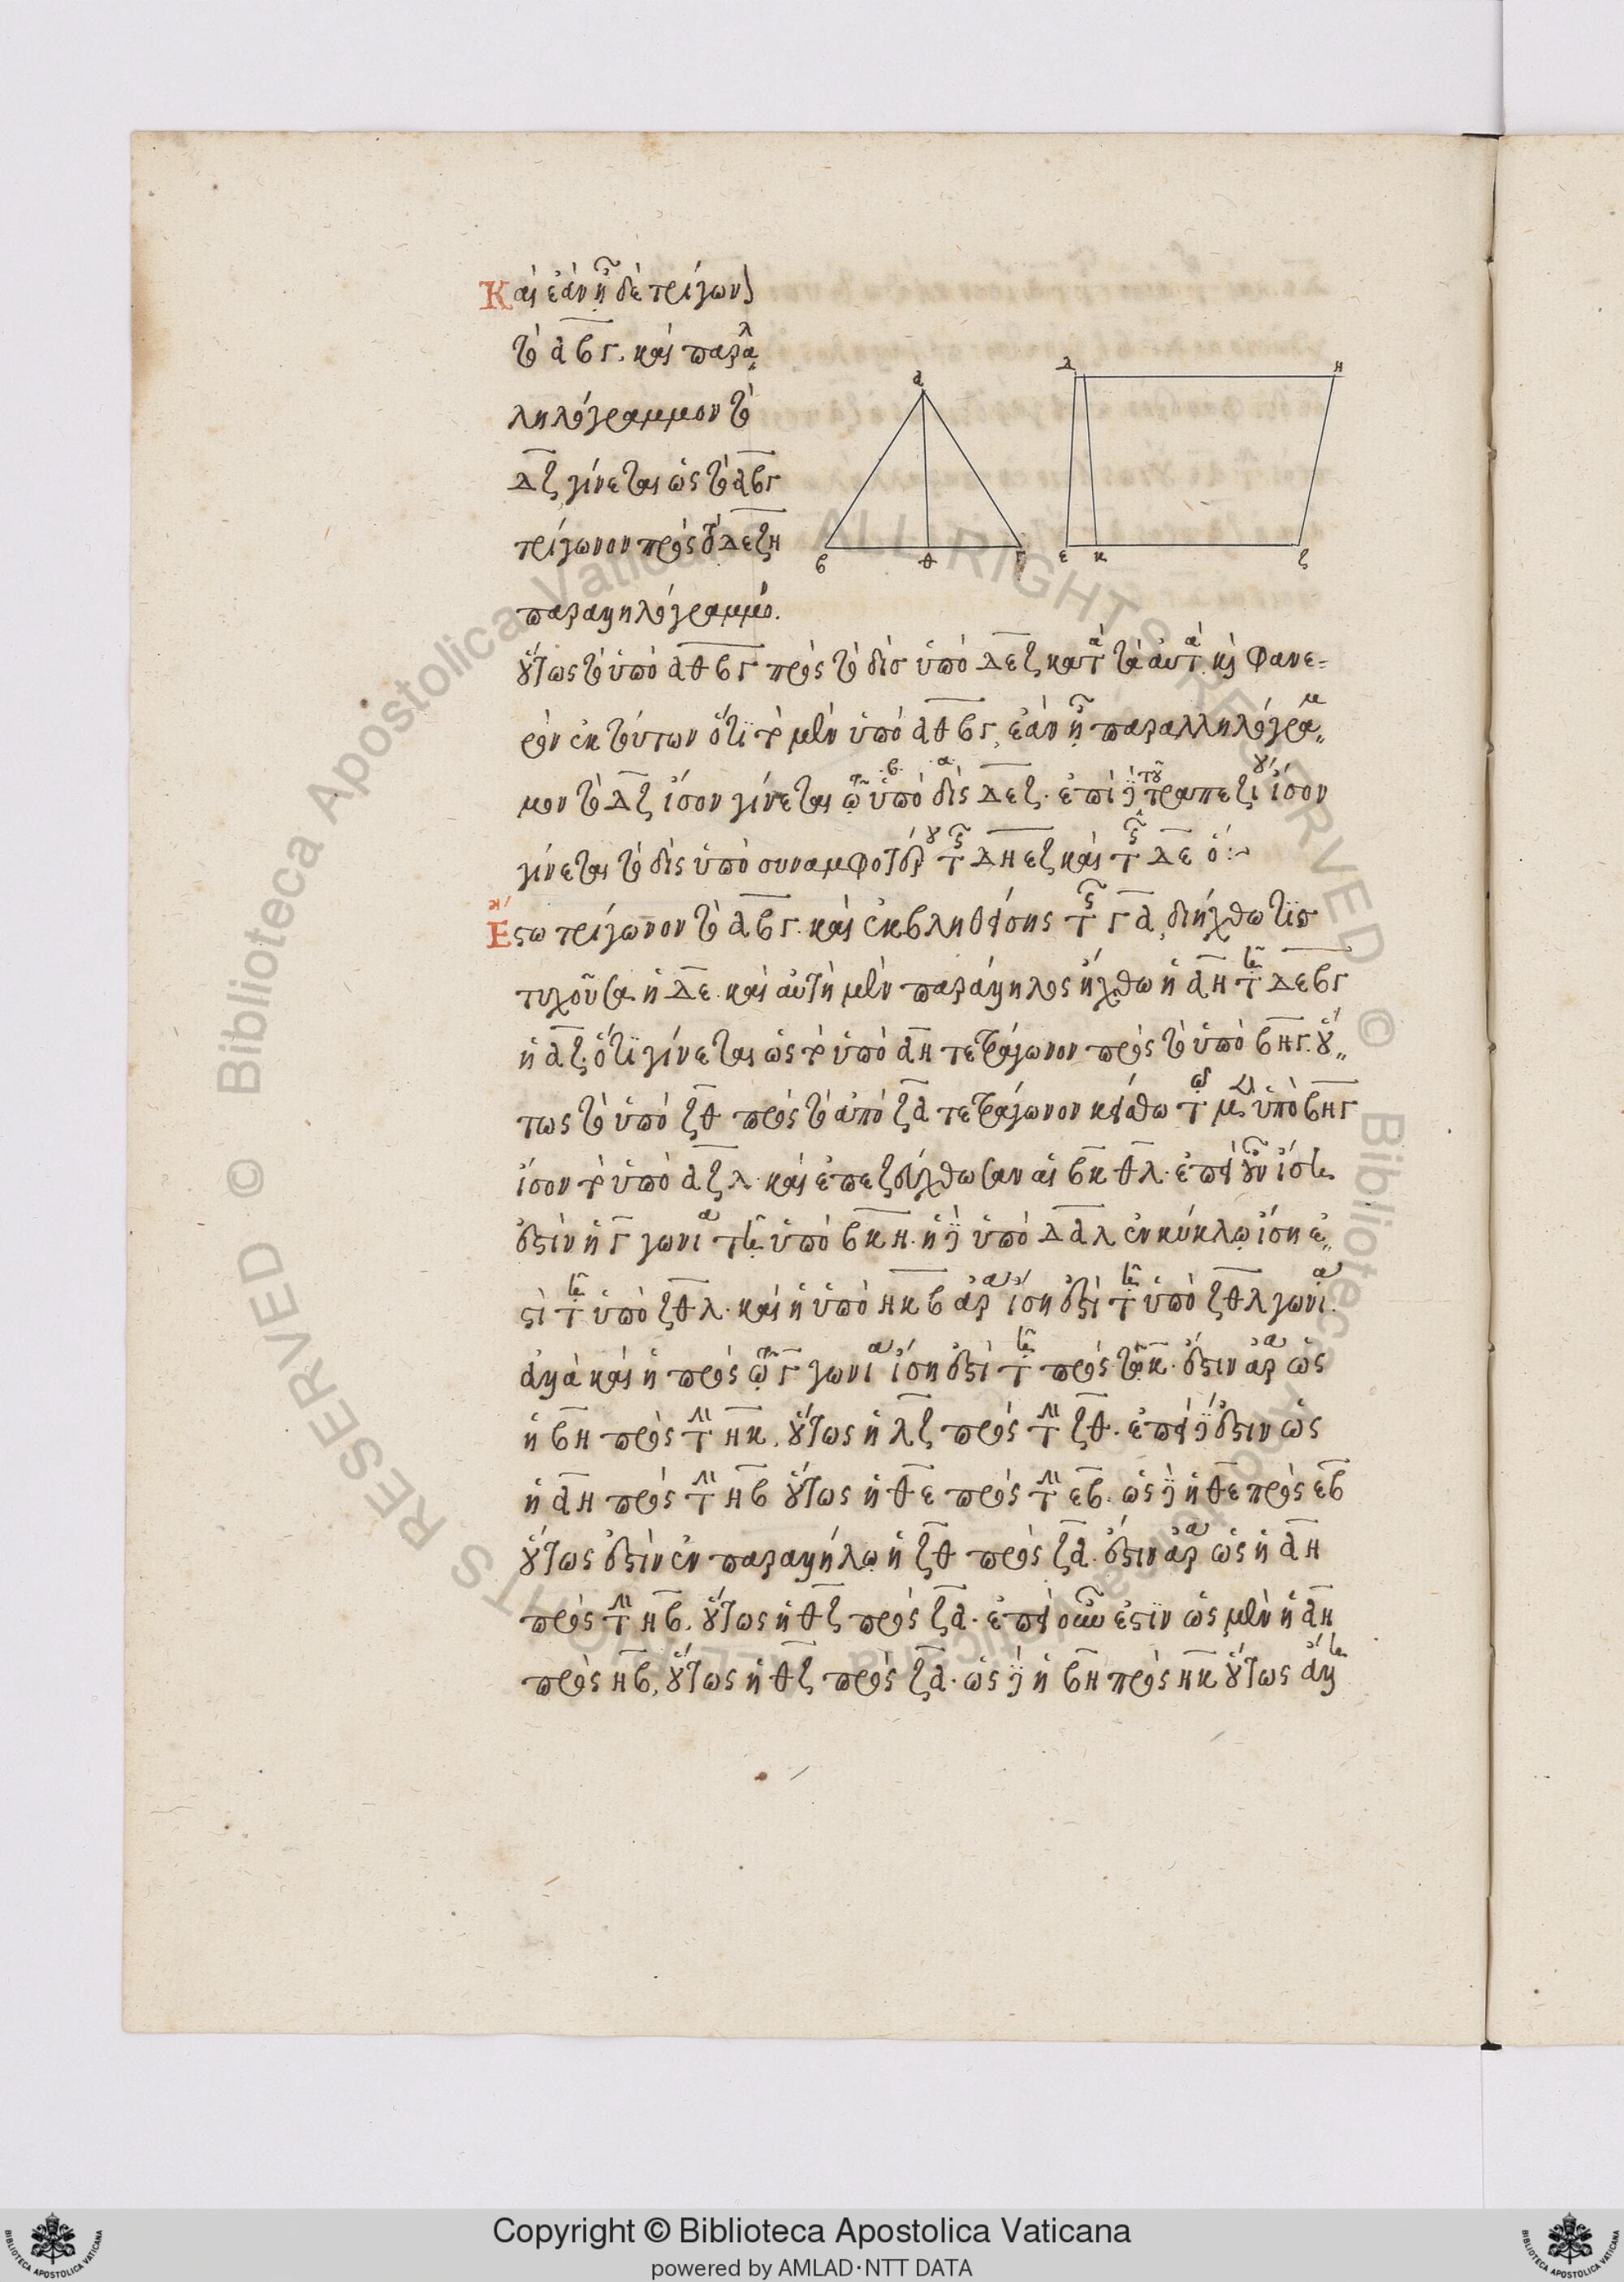 Καὶ ἐὰν ᾖ δὲ τρίγων
τὸ αβγ. καὶ παρα
ληλόγραμμον τὸ
δζ γίνεται ὡς τὸ αβγ
τρίγωνον πρὸς τὸ δεζη
παραλληλόγραμμο.
οὕτως τὸ ὑπὸ αθ βγ πρὸς τὸ δὶσ ὑπὸ δεζ κατὰ τὰ αὐτά. καὶ φανε
ρὸν ἐκ τούτων ὅτι τὸ μὲν ὑπὸ αθ βγ, ἐὰν ᾖ παραλληλόγραμ
μον τὸ δζ ἴσον γίνεται τῷ ὑπὸ δὶς δεζ. ἐπὶ δὲ τοῦ τραπεζίου ἴσον
γίνεται τὸ δὶς ὑπὸ συναμφοτέρου τῆς δη εζ καὶ τῆς δε ὅ:~
κ
Εστω τρίγωνον τὸ αβγ. καὶ ἐκβληθείσης τῆς γα, διήχθω τὶσ
τυχοῦσα ἡ δε. καὶ αὐτὴ μὲν παράλληλος ἤχθω ἡ αη τῇ δε βγ
ἡ αζ. ὅτι γίνεται ὡς τὸ ὑπὸ αη τετράγωνον πρὸς τὸ ὑπὸ βηγ. οὕ
τως τὸ ὑπὸ ζθ πρὸς τὸ ἀπὸ ζα τετράγωνον κείσθω τῷ μὲν ὑπὸ βηγ
ἴσον τὸ ὑπὸ αζλ. καὶ ἐπεζεύχθωσαν αἱ βκ θλ. ἐπεὶ οὖν ἴση
ἐστὶν ἡ γ γωνία τῇ ὑπὸ βκη. ἡ δὲ ὑπὸ δαλ ἐν κύκλῳ ἴση ἐ
στὶ τῇ ὑπὸ ζθλ. καὶ ἡ ὑπὸ ηκβ ἄρα ἴση ἐστὶ τῇ ὑπὸ ζθλ γωνία.
ἀλλὰ καὶ ἡ πρὸς τῷ γ γωνία ἴση ἐστὶ τῇ πρὸς τῷ κ. ἔστιν ἄρα ὡς
ἡ βη πρὸς τὴν ηκ, οὕτως ἡ λζ πρὸς τὴν ζθ. ἐπεὶ δέ ἐστιν ὡς
ἡ αη πρὸς τὴν ηβ οὕτως ἡ θε πρὸς τὴν εβ. ὡς δὲ ἡ θε πρὸς εβ
οὕτως ἐστὶν ἐν παραλλήλῳ ἡ ζθ πρὸς ζα. ἔστιν ἄρα ὡς ἡ αη
πρὸς τὴν ηβ, οὕτως ἡ θζ πρὸς ζα. ἐπεὶ οὖν ἐστὶν ὡς μὲν ἡ αη
πρὸς ηβ, οὕτως ἡ θζ πρὸς ζα. ὡς δὲ ἡ βη πρὸς ηκ οὕτως ἄλλη
α
β
θ
γ
δ
η
ε
κ
ζ
© Biblioteca Apostolica Vaticana ALL RIGHTS RESERVED
Copyright © Biblioteca Apostolica Vaticana
powered by AMLAD·NTT DATA
BIBLIOTECA APOSTOLICA VATICANA
BIBLIOTECA APOSTOLICA VATICANA